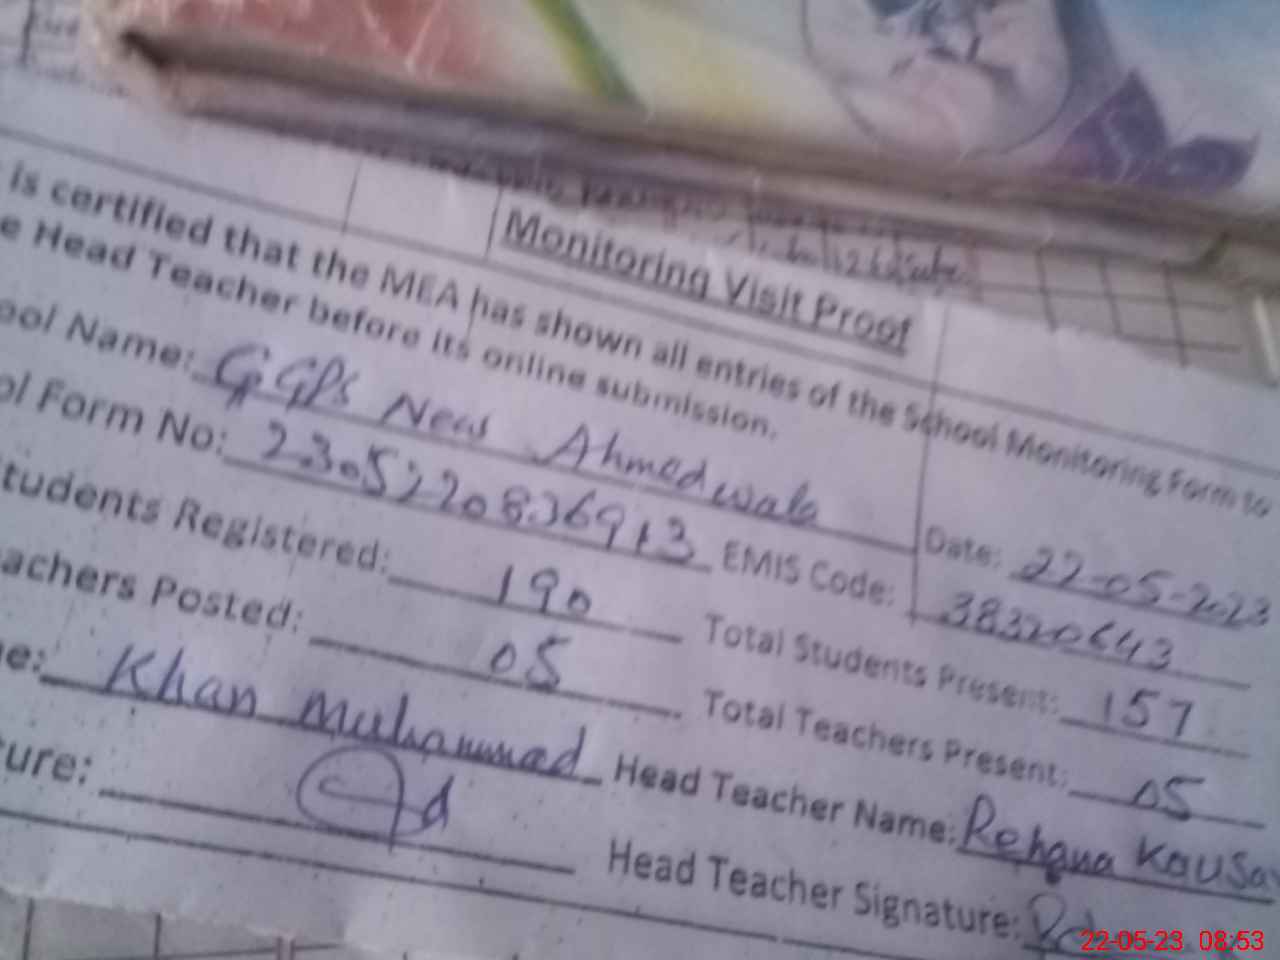 Monitoring Visit Proof
is certified that the MEA has shown all entries of the School Monitoring Form to
e Head Teacher before its online submission.
ool Name: GGPS New Ahmedwala Date: 22-05-2023
ol Form No: EMIS Code: 38320643
tudents Registered: 190 Total Students Present: 157
achers Posted: 05 Total Teachers Present: 05
e: Khan Muhammad Head Teacher Name: Rehana Kausa
ture: Head Teacher Signature:
22-05-23 08:53